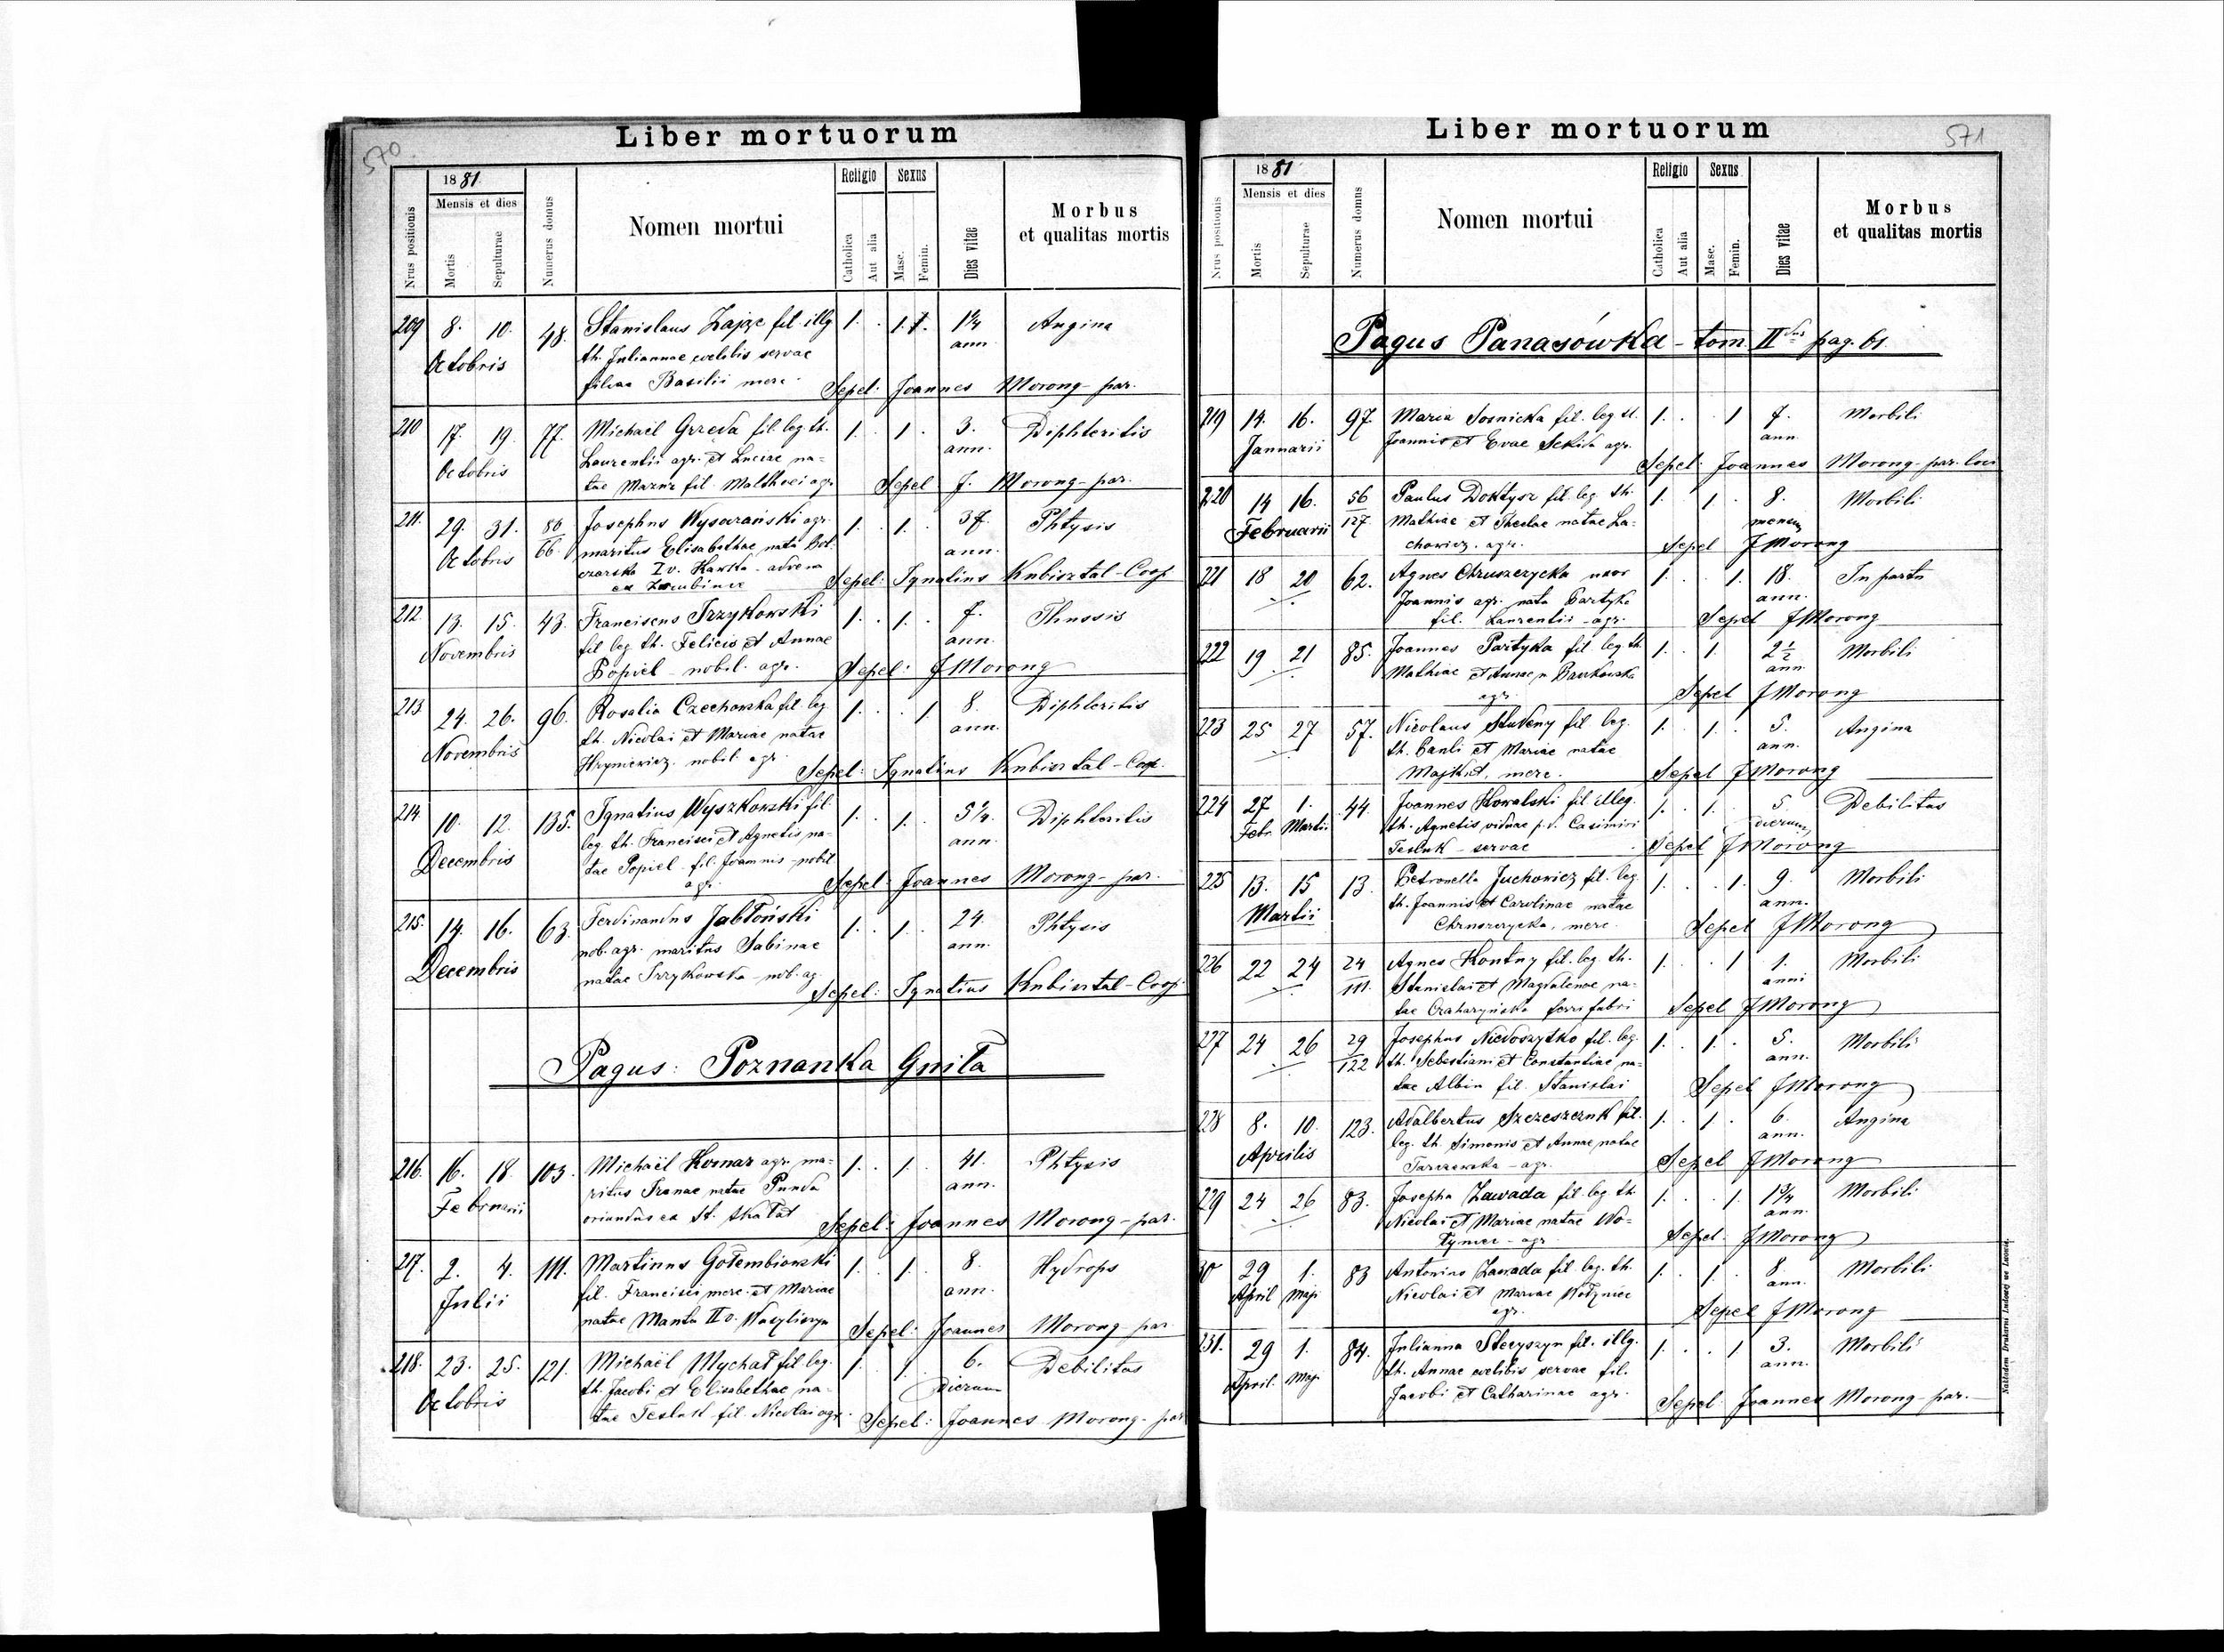 570
Liber mortuorum
1881.
Mensis et dies
Religio
Sexus
Nrus positionis
Mortis
Sepulturae
Numerus domus
Nomen mortui
Catholica
Aut alia
Masc.
Femin.
Dies vitae
Morbus
et qualitas mortis
209 8. 10. 48. Stanislaus Zając fil. illg 1. 1. 1¼ Angina
th. Juliannae coelibis servae ann.
Octobris
filiae Basilii merc. Sepel: Joannes Morong - par.
210 17. 19. 77. Michaël Grzeda fil. leg. th. 1. 1. 3. Diphteritis
Laurentii agr. et Luciae na= ann.
Octobris
tae Mazur fil. Matthaei agr. Sepel J. Morong - par.
211. 29. 31. 86/66. Josephus Wysoczański agr. 1. 1. 37. Phtysis
Octobris maritus Elisabethae nata Bot ann.
czarska I v. Kawka - advena
ex Zarubince Sepel: Ignatius Kubisztal - Coop
212. 13. 15. 43. Franciscus Trzykowski 1. 1. 7. Thussis
Novembris fil leg. th. Felicis et Annae ann.
Popiel - nobil. agr. Sepel: J Morong
213 24. 26. 96. Rosalia Czechowska fil. leg. 1. 1. 8. Diphteritis
th. Nicolai et Mariae natae ann.
Novembris
Hryniewicz nobil. agr. Sepel: Ignatius Kubisztal - Coop.
214. 10. 12. 135. Ignatius Wyszkowski fil. 1. 1. 5¼ Diphteritis
leg. th. Francisci et Agnetis na= ann.
Decembris
tae Popiel - fil. Joannis - nobil
agr. Sepel: Joannes Morong - par.
215. 14. 16. 63. Ferdinandus Jabłoński 1. 1. 24. Phtysis
nob. agr. maritus Sabinae ann.
Decembris
natae Trzykowska - nob. ag. Sepel: Ignatius Kubisztal - Coop
Pagus: Poznanka Gniła
216. 16. 18. 103. Michaël Komar agr. ma= 1. 1. 41. Phtysis
ritus Iranae natae Punda ann.
Februarii
oriundus ex St. Skałat Sepel: Joannes Morong - par.
217. 2. 4. 111. Martinus Gołembiowski 1. 1. 8. Hydrops
Julii fil. Francisci merc. et Mariae ann.
natae Manta II v. Wasyliszyn Sepel: Joannes Morong par
218. 23. 25. 121. Michaël Mychał fil leg. 1. 1. 6. Debilitas
th. Jacobi et Elisabethae na= Dierum
Octobris
tae Tesluk fil. Nicolai agr. Sepel: Joannes Morong - par
571
Liber mortuorum
1881
Mensis et dies
Religio
Sexus
Nrus positionis
Mortis
Sepulturae
Numerus domus
Nomen mortui
Catholica
Aut alia
Masc.
Femin.
Dies vitae
Morbus
et qualitas mortis
Pagus Panasówka - tom IIdus pag. 61.
219 14. 16. 97. Maria Sosnicka fil. leg. th. 1. 1 7. Morbili
Januarii Joannis et Evae Sekida agr. ann.
Sepel: Joannes Morong - par. loci
220 14 16. 56/127. Paulus Doktysz fil. leg. th. 1. 1. 8. Morbili
Februarii Mathiae et Theclae natae La= mensum
chowicz. agr. Sepel J Morong
221 18 20 62. Agnes Chruszczycka uxor 1. 1. 18. In partu
Joannis agr. nata Partyka ann.
fil. Laurentii - agr. Sepel J Morong
222 19 21 85. Joannes Partyka fil. leg. th 1. 1. 2½ Morbili
Mathiae et Annae n Baczkowska ann
agr. Sepel J Morong
223 25 27 57. Nicolaus Studeny fil. leg. 1. 1. 5. Angina
th. Pauli et Mariae natae ann.
Majkut, merc. Sepel J Morong
224 27 1. 44. Joannes Kowalski fil illeg. 1. 1. 5. Debilitas
Febr. Martii th. Agnetis viduae p. d. Casimiri dierum
Tesluk - servae Sepel J Morong
225 13. 15 13. Petronella Juchowicz fil. leg. 1. 1. 9. Morbili
Martii th. Joannis et Carolinae natae ann.
Chruszczycka, merc. Sepel J Morong
226 22 24 24/111. Agnes Kontny fil. leg. th. 1. 1 1. Morbili
Stanislai et Magdalenae na= anni
tae Czaharyńska ferri fabri Sepel J Morong
227 24 26 29/122 Josephus Niedoszytko fil. leg. 1. 1. 5. Morbili
th. Sebastiani et Constantiae na= ann.
tae Albin fil. Stanislai Sepel J Morong
228 8. 10. 123. Adalbertus Szczeszczuk fil. 1. 1. 6. Angina
leg. th. Simonis et Annae natae ann.
Aprilis
Tarczewska - agr. Sepel J Morong
229 24 26 83. Josepha Zawada fil leg. th. 1. 1. 1¾ Morbili
Nicolai et Mariae natae Wo= ann.
łyniec - agr. Sepel. J Morong
30 29 1. 83 Antonius Zawada fil. leg. th. 1. 1. 8. Morbili
April Maji Nicolai et Mariae Wołyniec ann.
agr. Sepel J Morong
231. 29 1. 84. Julianna Stecyszyn fil. illg. 1. 1 3. Morbili
April. Maji th. Annae coelibis servae fil. ann.
Jacobi et Catharinae agr. Sepel Joannes Morong - par.
Nakładem Drukarni Ludowej we Lwowie.